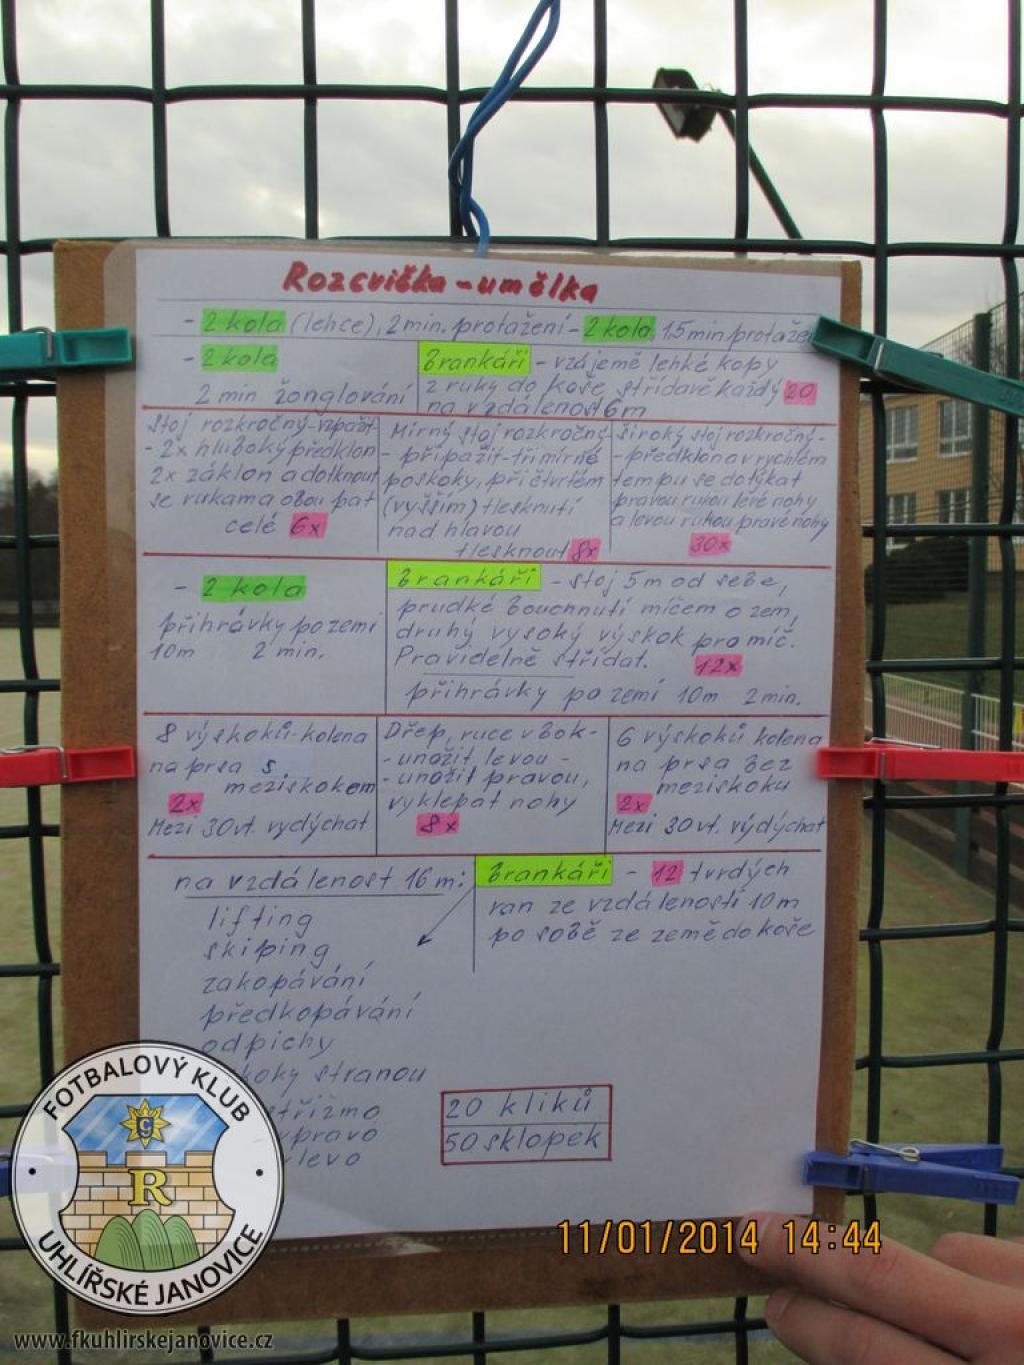 Rozcvička - umělka
- 2 kola (lehce), 2 min. protažení - 2 kola, 1,5 min protažen
- 2 kola
2 min žonglování
Brankáři - vzájemě lehké kopy
z ruky do koše střídavě každý 20
na vzdálenost 6m
Stoj rozkročný - vzpažit
- 2x hluboký předklon
2x záklon a dotknout
se rukama obou pat
celé 6x
Mírný stoj rozkročný
- připažit - tři mírné
poskoky, při čtvrtém
(vyšším) tlesknutí
nad hlavou
tlesknout 8x
široký stoj rozkročný -
- předklon a v rychlém
tempu se dotýkat
pravou rukou levé nohy
a levou rukou pravé nohy
30x
- 2 kola
přihrávky po zemi
10m 2 min.
Brankáři - stoj 5m od sebe,
prudké bouchnutí míčem o zem,
druhý vysoký výskok pro míč.
Pravidelně střídat. 12x
přihrávky po zemí 10m 2min.
8 výskoků - kolena
na prsa s
meziskokem
2x
Mezi 30vt. vydýchat
Dřep, ruce v bok -
- unožit levou -
- unožit pravou,
vyklepat nohy
8x
6 výskoků kolena
na prsa bez
meziskoku
2x
Mezi 30 vt. výdýchat
na vzdálenost 16 m:
lifting
skiping
zakopávání
předkopávání
odpichy
koky stranou
Brankáři - 12 tvrdých
ran ze vzdáleností 10m
po sobě ze země do koše
20 kliků
50 sklopek
11/01/2014 14:44
FOTBALOVÝ KLUB
G
R
UHLÍŘSKÉ JANOVICE
www.fkuhlirskejanovice.cz